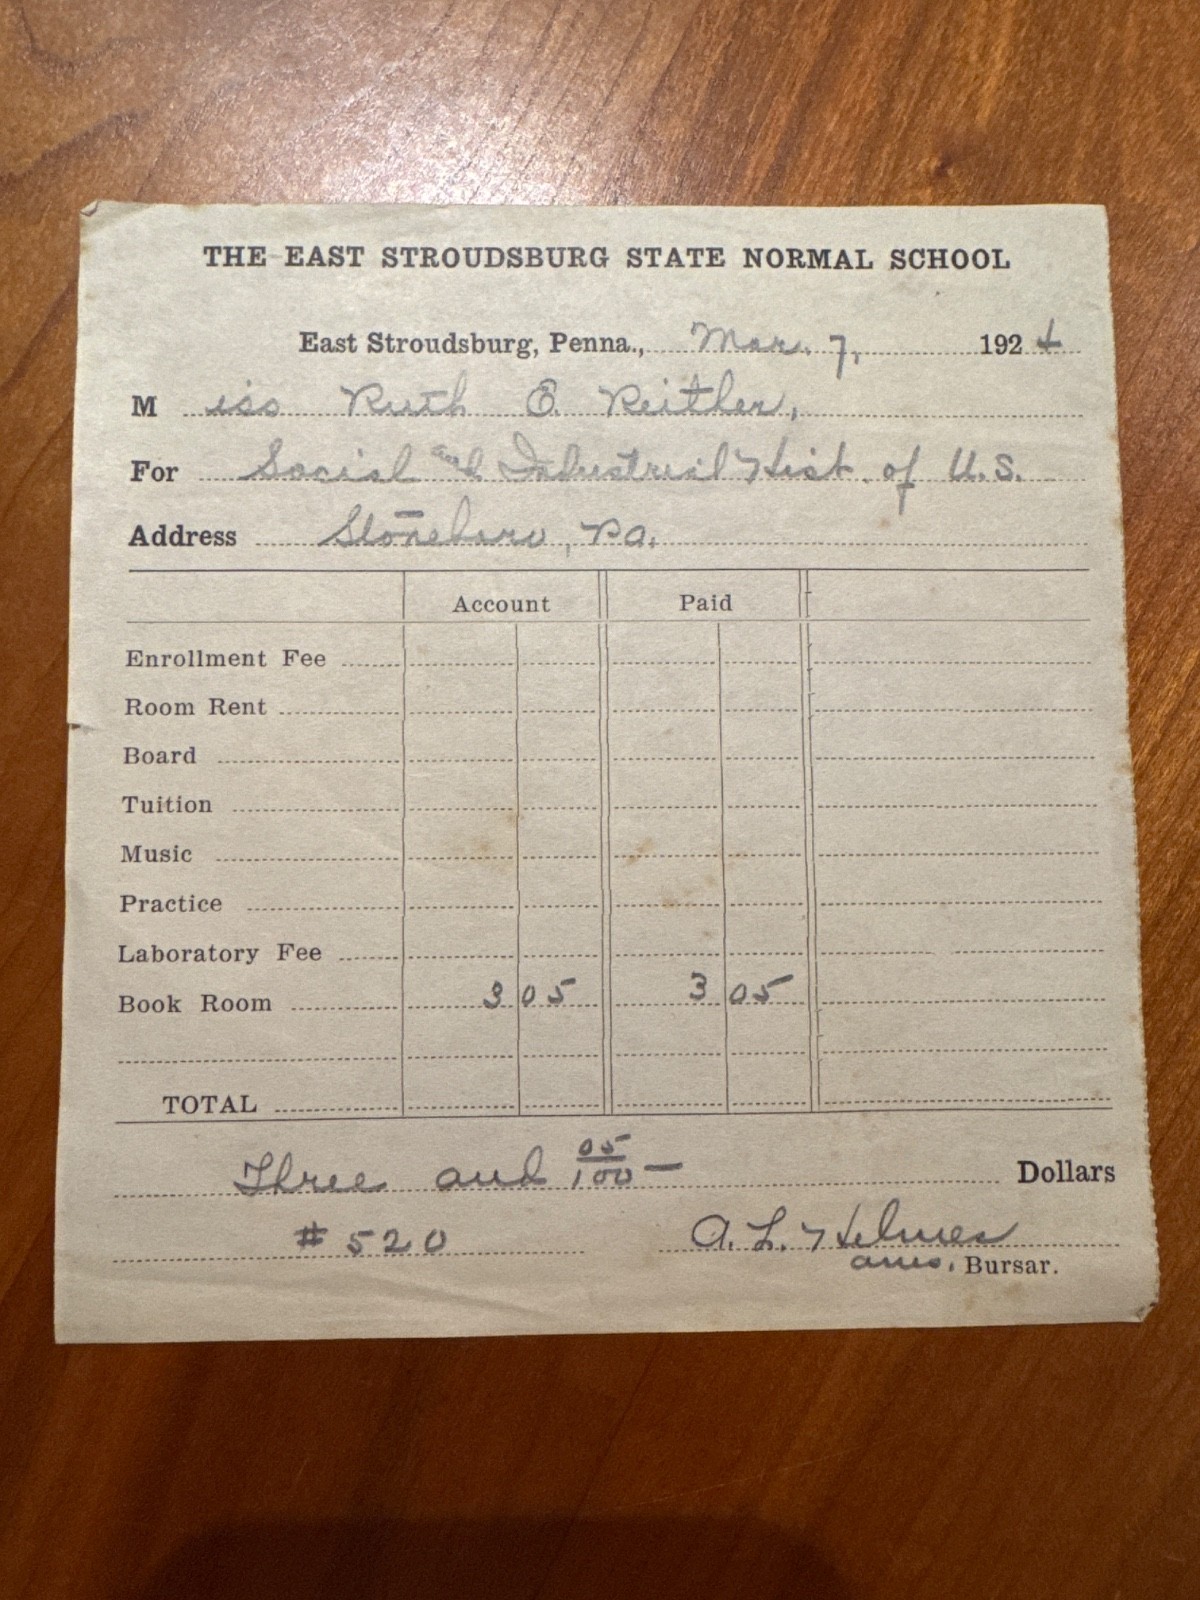 THE EAST STROUDSBURG STATE NORMAL SCHOOL
East Stroudsburg, Penna., Mar. 7, 1924
Miss Ruth E. Reither,
For Social and Industrial Hist. of U.S.
Address Stoneboro, Pa.
Account Paid
Enrollment Fee
Room Rent
Board
Tuition
Music
Practice
Laboratory Fee
Book Room 3 05 3 05
TOTAL
Three and 05/100 — Dollars
#520 A. L. Helmes
Bursar.